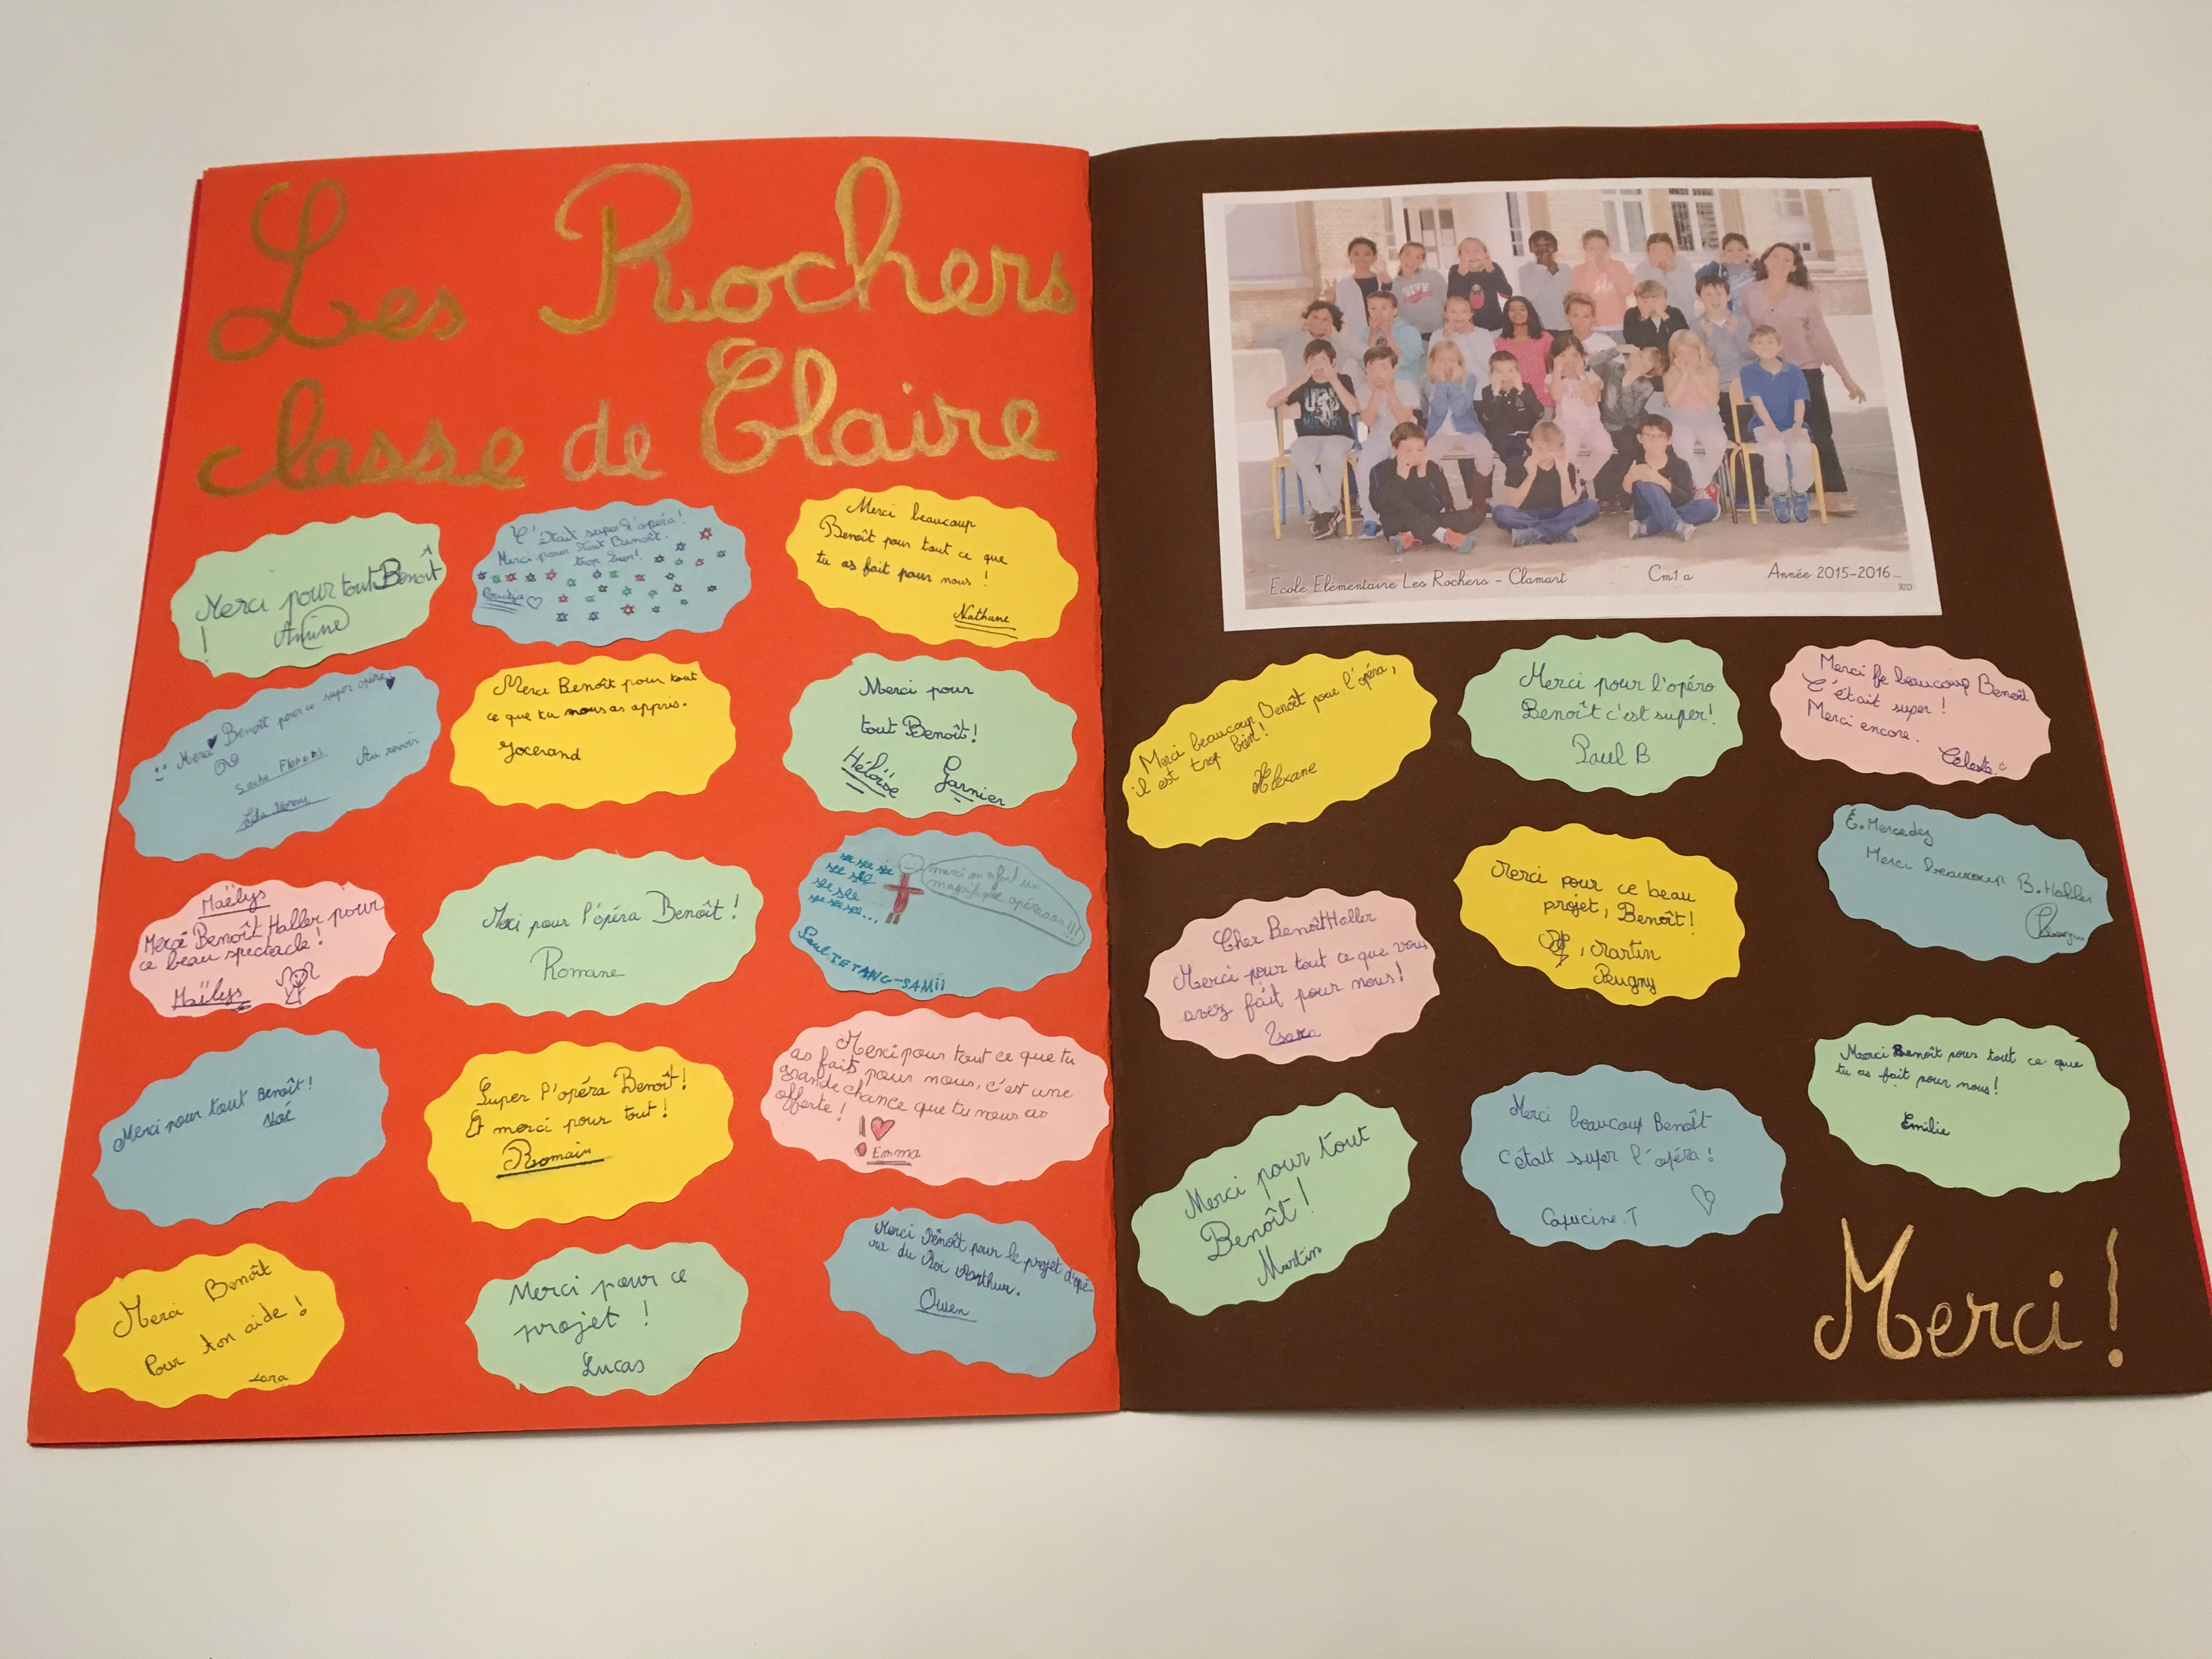 Les Rochers
classe de Claire
Merci pour tout Benoît
!
Amine
C'était super l'opéra!
Merci pour tout Benoît.
trop bien!
Merci beaucoup
Benoît pour tout ce que
tu as fait pour nous !
Nathane
Merci Benoît pour ce super opéra!
Au revoir
Merci Benoît pour tout
ce que tu nous as appris.
Jocerand
Merci pour
tout Benoît!
Héloïse Garnier
Maëlys
Merci Benoît Haller pour
ce beau spectacle!
Maëlys
Merci pour l'opéra Benoît!
Romane
merci on a fait un
magnifique opéraaa!!!
Paul TETANG-SAMii
Merci pour tout Benoît!
Noé
Super l'opéra Benoît!
Et merci pour tout!
Romain
Merci pour tout ce que tu
as fait pour nous, c'est une
grande chance que tu nous as
offerte!
Emma
Merci Benoît
Pour ton aide!
Lara
Merci pour ce
projet !
Lucas
Merci Benoît pour le projet d'opé
ra du Roi Arthur.
Owen
Ecole Elémentaire Les Rochers - Clamart Cm1 a Année 2015-2016
920
Merci beaucoup Benoît pour l'opéra,
il est trop bien!
Alexane
Merci pour l'opéra
Benoît c'est super!
Paul B
Merci beaucoup Benoît
C'était super !
Merci encore.
Céleste
Cher Benoît Haller
Merci pour tout ce que vous
avez fait pour nous!
Merci pour ce beau
projet, Benoît!
Martin
Peugny
E. Mercedez
Merci beaucoup B. Haller
Merci pour tout
Benoît!
Martin
Merci beaucoup Benoît
c'était super l'opéra!
Capucine.T
Merci Benoît pour tout ce que
tu as fait pour nous!
Emilie
Merci!